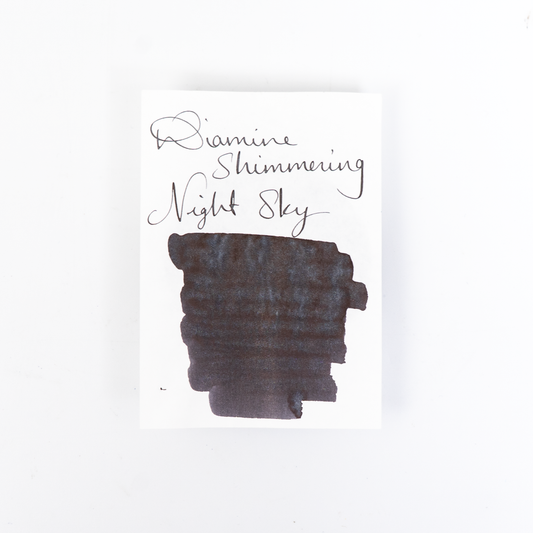 Diamine
Shimmering
Night Sky